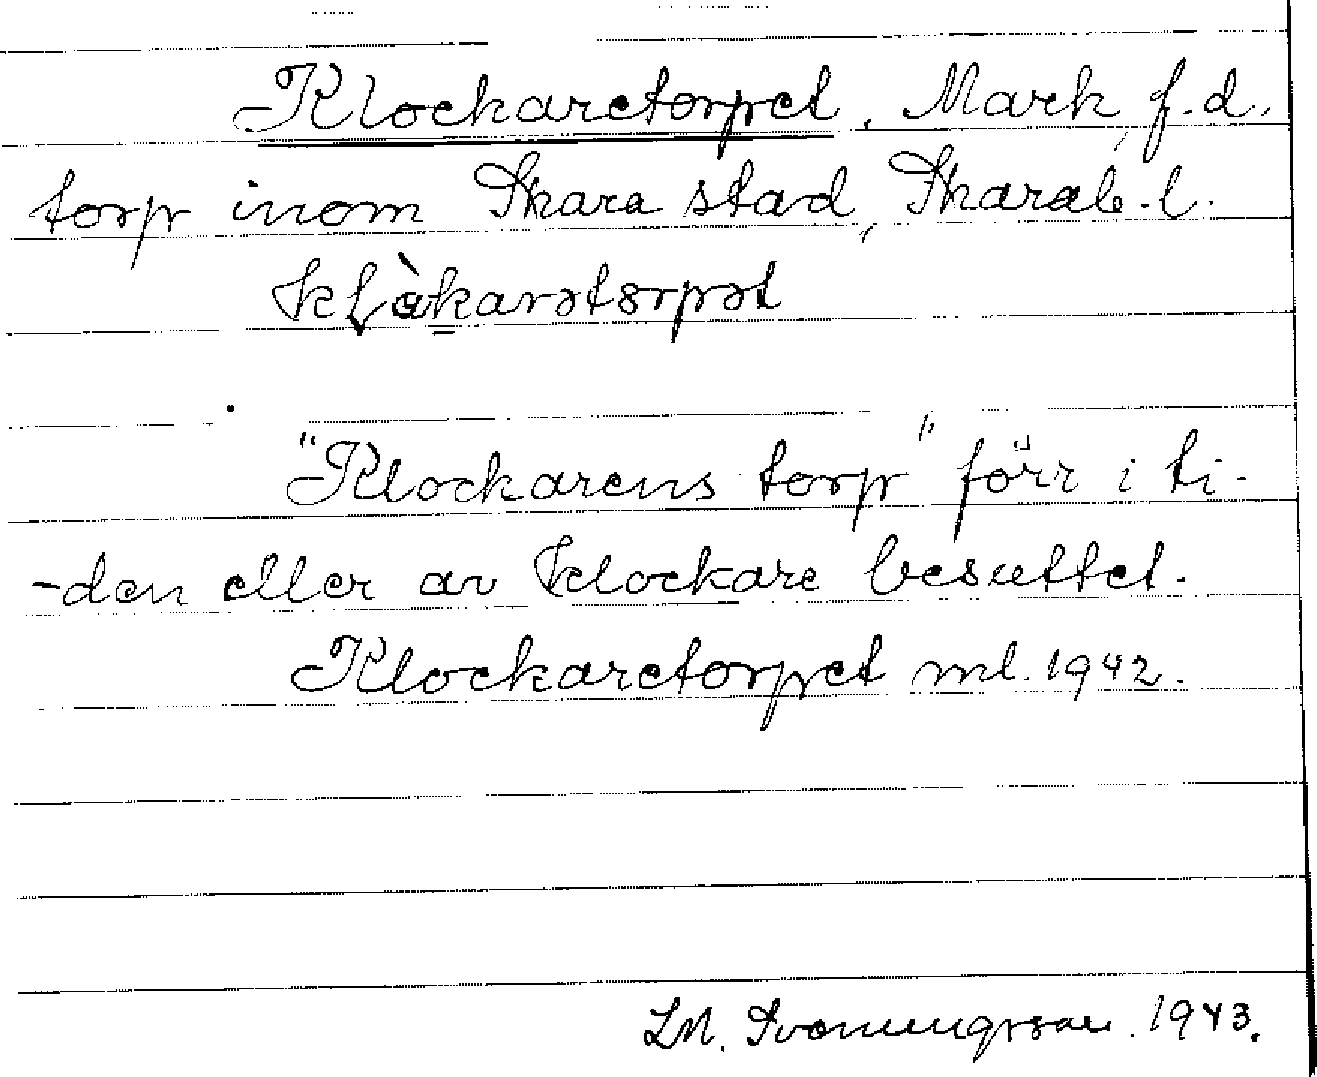 Klockaretorpet. Mark, f.d.
torp inom Skara stad, Skarab.l.
"Klockarens torp" förr i ti-
-den eller av klockare besuttet.
Klockaretorpet ml. 1942.
1943.